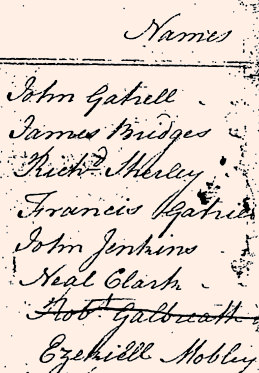 Names
John Gatrell
James Bridges
Richd. Sherley
Francis Gatrel
John Jenkins
Neal Clark
Robt. Galbreath
Ezekiell Mobley